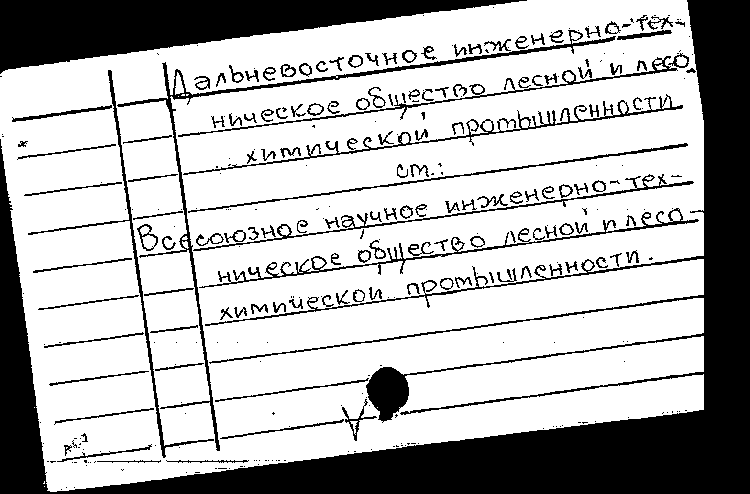 Дальневосточное инженерно-тех-
ническое общество лесной и лесо
химической промышленности
см.:
Всесоюзное научное инженерно-тех-
ническое общество лесной и лесо-
химической промышленности.